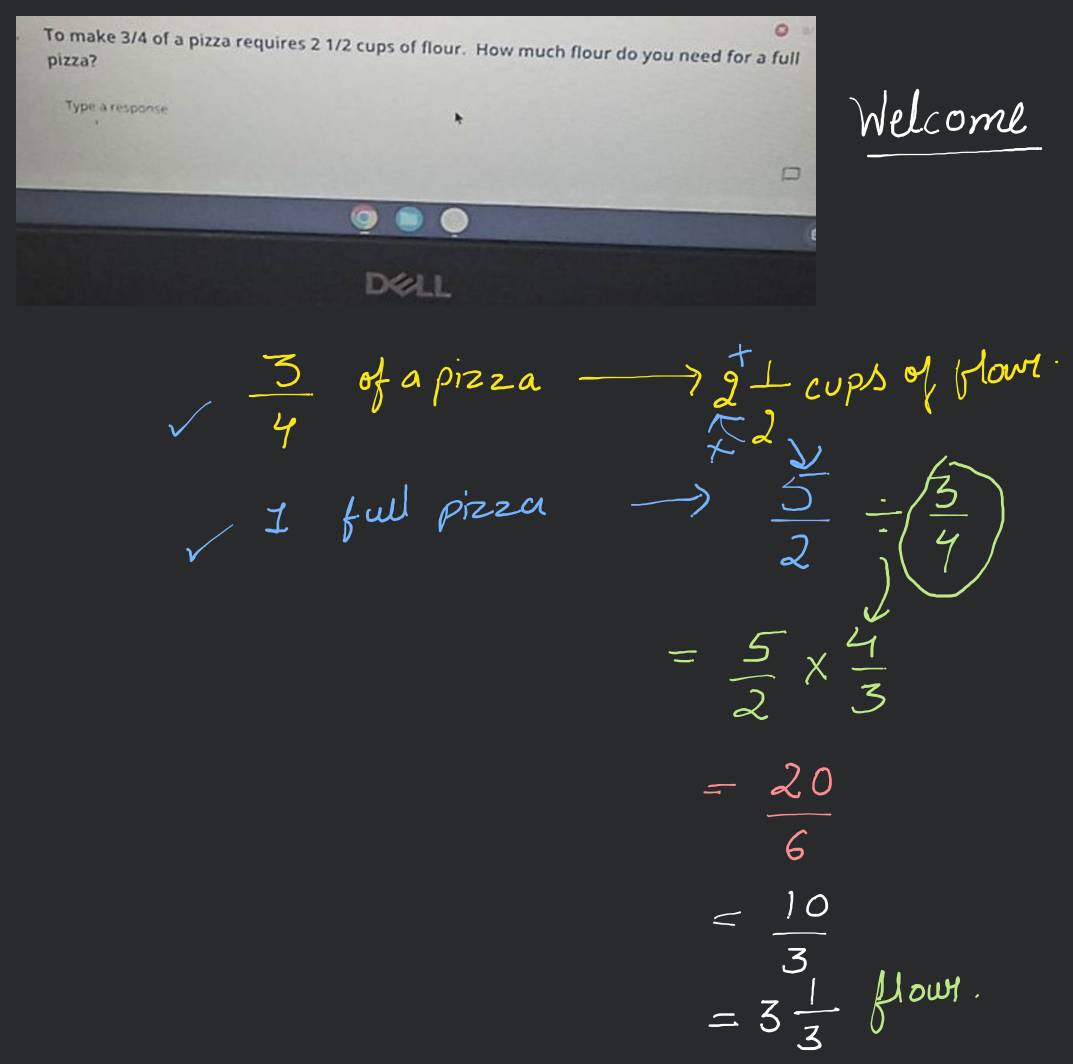 To make 3/4 of a pizza requires 2 1/2 cups of flour. How much flour do you need for a full
pizza?
Type a response
DELL
Welcome
3/4 of a pizza → 2 1/2 cups of flour.
+
×
✓
1 full pizza → 5/2 ÷ 3/4
✓
= 5/2 × 4/3
= 20/6
= 10/3
= 3 1/3 flour.